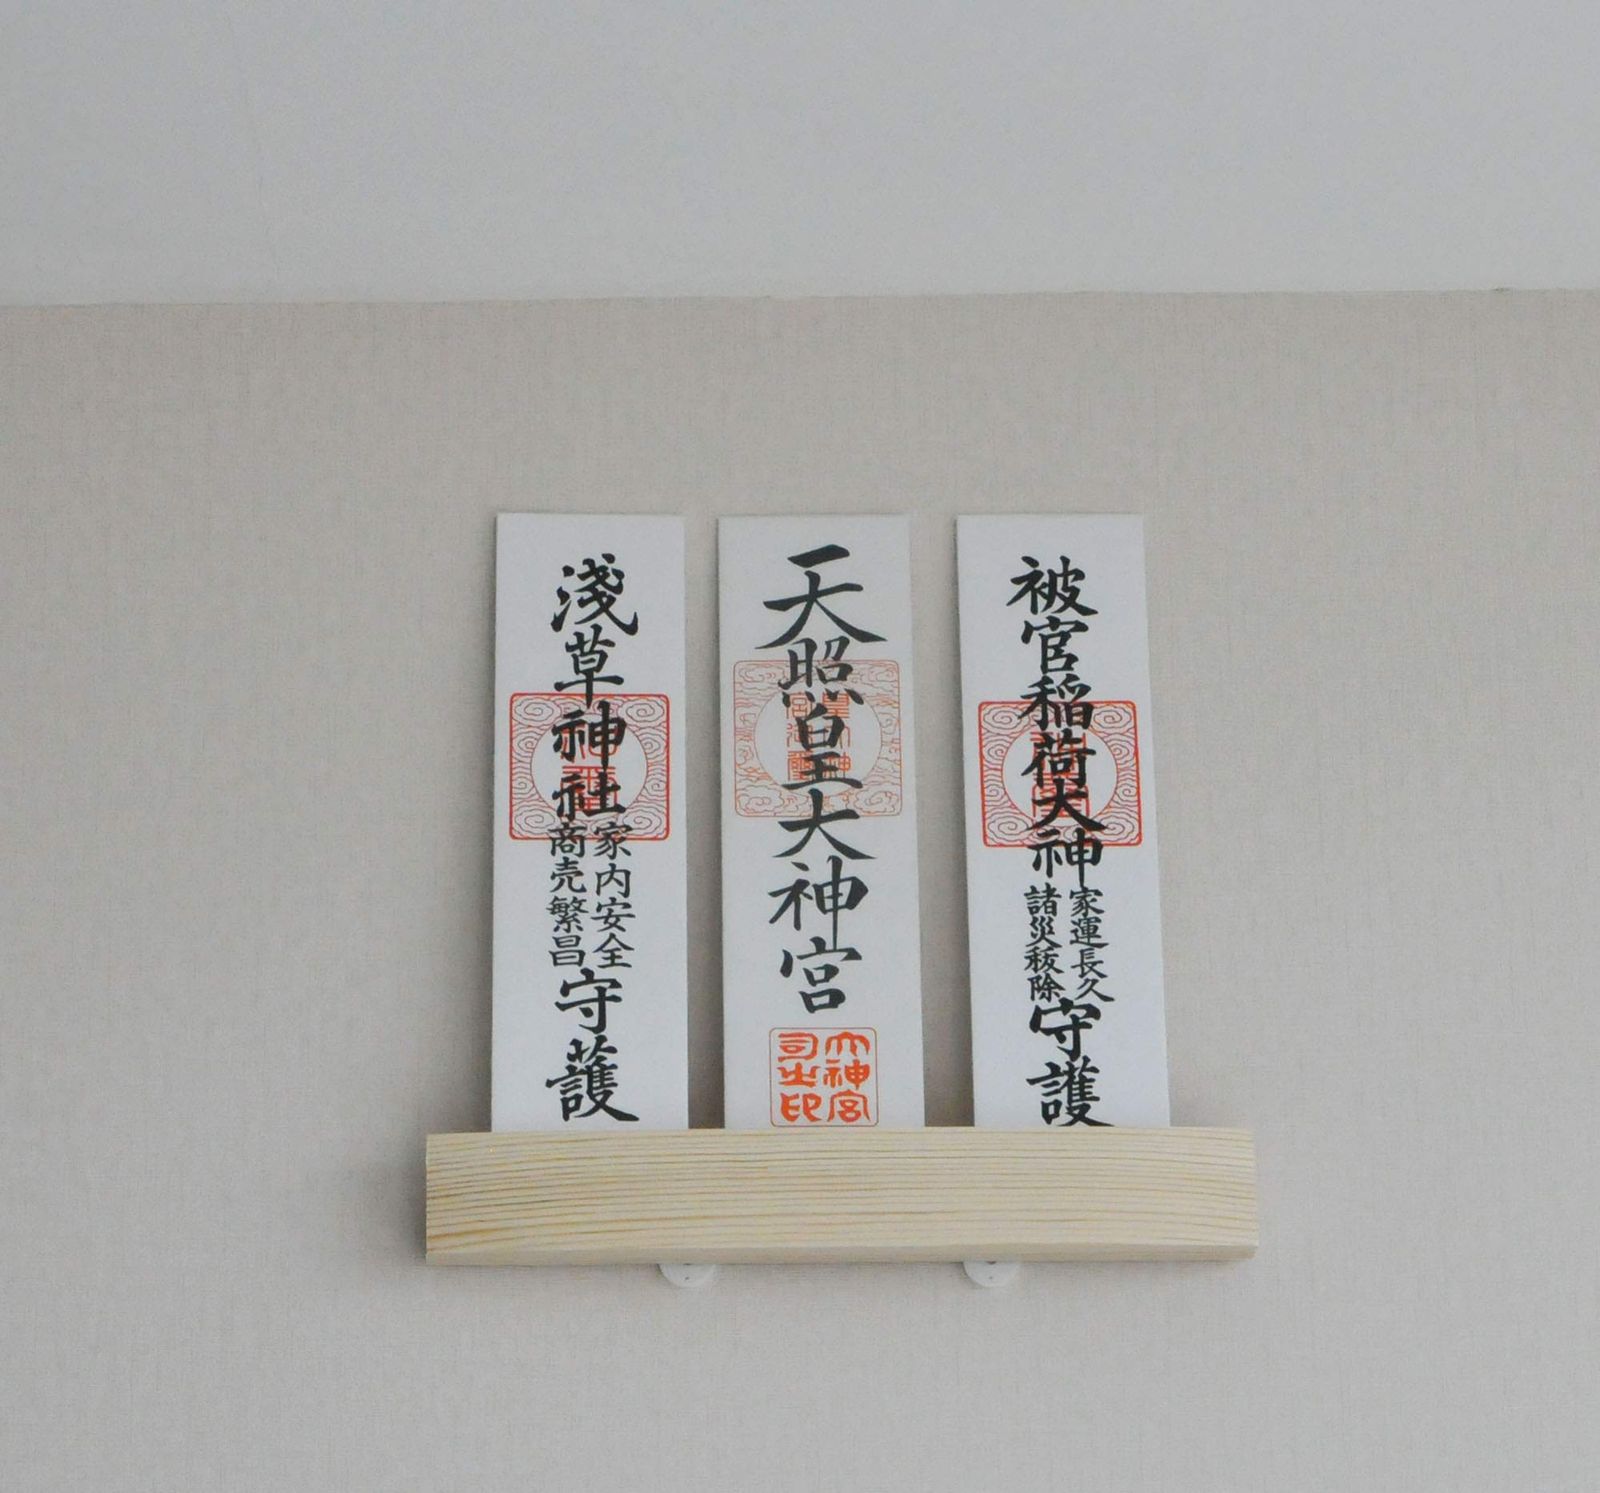 淺草神社
家内安全
商売繁昌
守護
天照皇大神宮
皇大神
宮御璽
大神宮
司之印
被官稲荷大神
家運長久
諸災秡除
守護